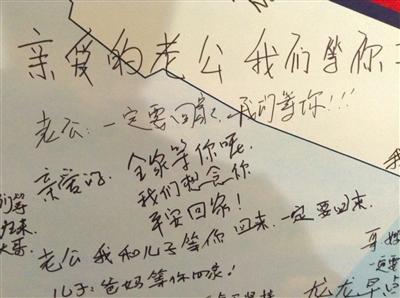 亲爱的老公 我们等你
老公:一定要回家,我们等你!!!
亲爱的:全家等你呢
我们想念你
平安回家!
老公 我和儿子等你回来,一定要回来.
儿子:爸妈等你回家!
归来
大哥.
一定要